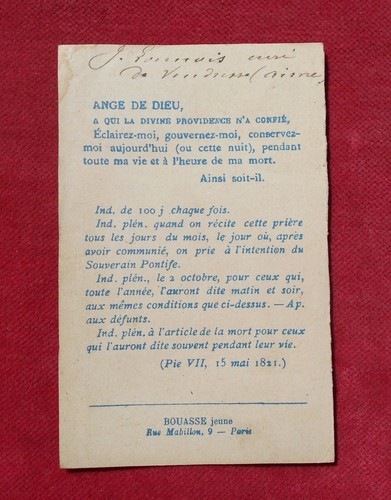 J. curé
de Vendresse (Aisne)
ANGE DE DIEU,
A QUI LA DIVINE PROVIDENCE N'A CONFIÉ,
Éclairez-moi, gouvernez-moi, conservez-
moi aujourd'hui (ou cette nuit), pendant
toute ma vie et à l'heure de ma mort.
Ainsi soit-il.
Ind. de 100 j chaque fois.
Ind. plén. quand on récite cette prière
tous les jours du mois, le jour où, après
avoir communié, on prie à l'intention du
Souverain Pontife.
Ind. plén., le 2 octobre, pour ceux qui,
toute l'année, l'auront dite matin et soir,
aux mêmes conditions que ci-dessus. — Ap.
aux défunts.
Ind. plén. à l'article de la mort pour ceux
qui l'auront dite souvent pendant leur vie.
(Pie VII, 15 mai 1821.)
BOUASSE jeune
Rue Mabillon, 9 — Paris